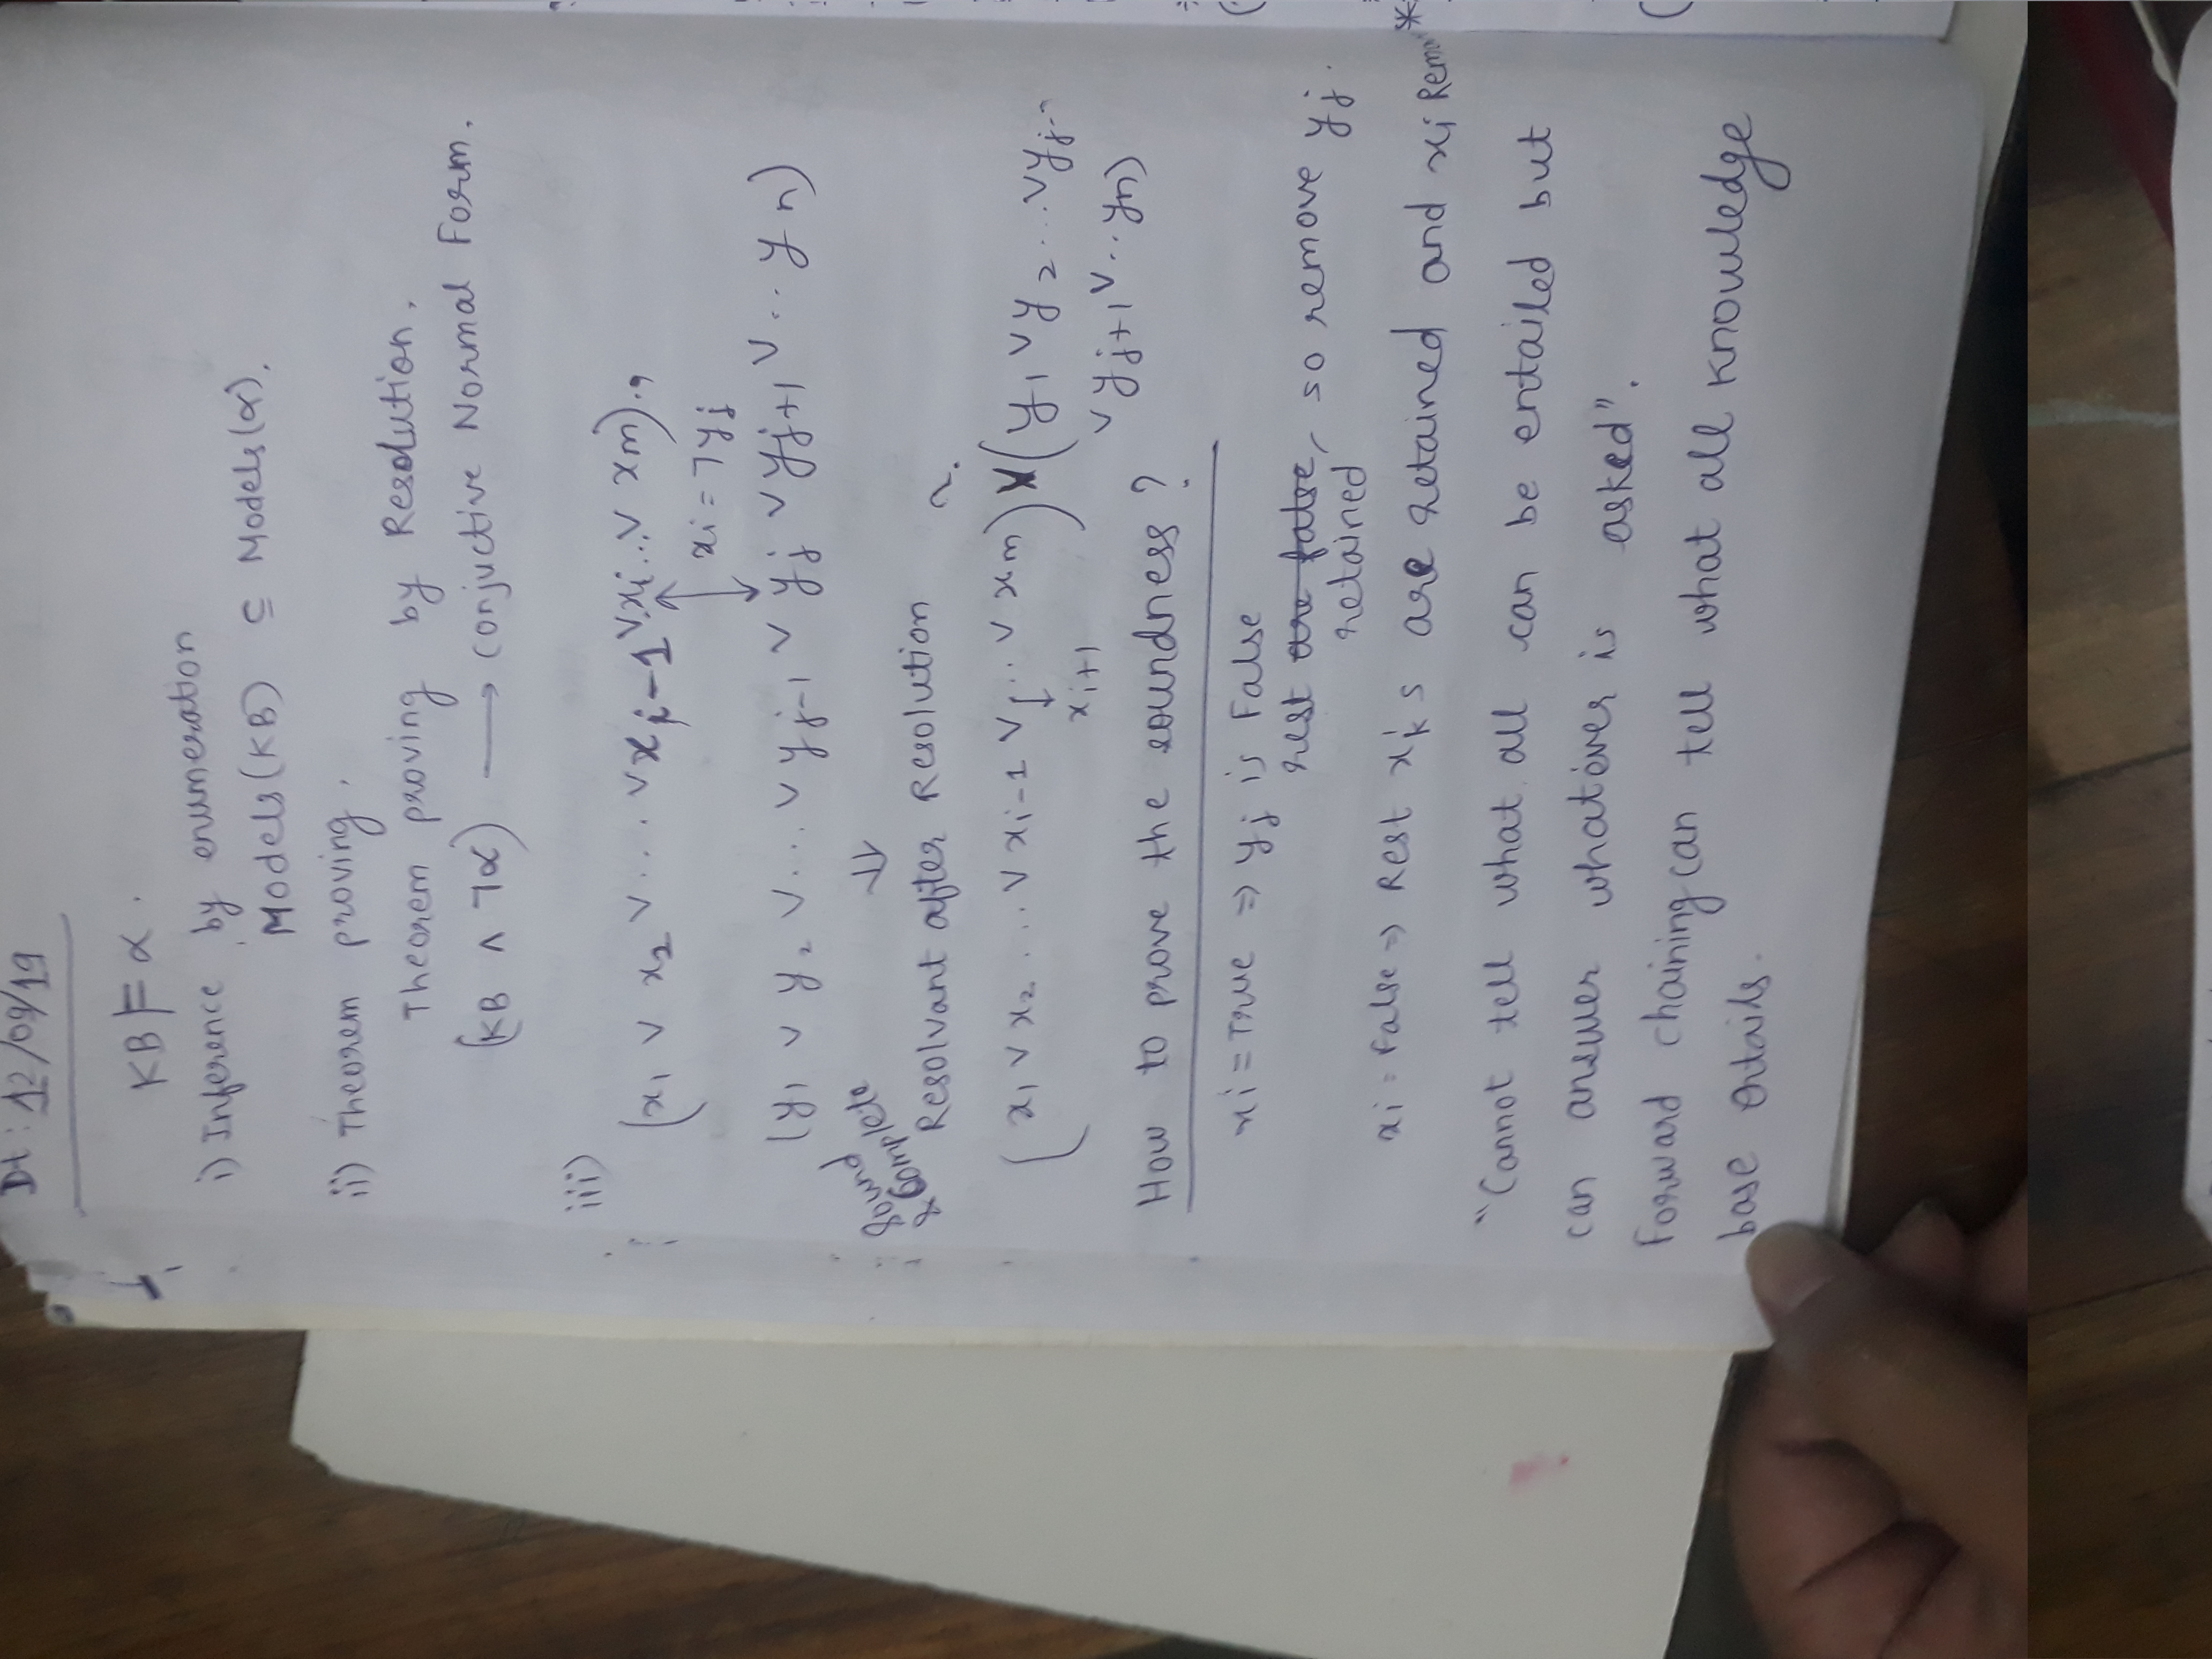 Dt: 12/09/19
KB ⊨ α.
i) Inference by enumeration
Models(KB) ⊆ Models(α).
ii) Theorem proving,
Theorem proving by Resolution,
(KB ∧ ¬α) → Conjuctive Normal Form.
iii)
(x1 ∨ x2 ∨ ... ∨ xi-1 ∨ xi .. ∨ xm),
xi = ¬yj
(y1 ∨ y2 ∨ ... ∨ yj-1 ∨ yj ∨ yj+1 ∨ .. yn)
Sound & Complete
⇓
Resolvant after Resolution ?
(x1 ∨ x2 ... ∨ xi-1 ∨ ... ∨ xm) ∨ (y1 ∨ y2 ... ∨ yj-1
xi+1
∨ yj+1 ∨ .. yn)
How to prove the soundness?
xi = True ⇒ yj is False
rest are false, so remove yj.
retained
xi = False ⇒ Rest xk's are retained and xi
"Cannot tell what all can be entailed but
can answer whatever is asked".
Forward chaining can tell what all knowledge
base entails.